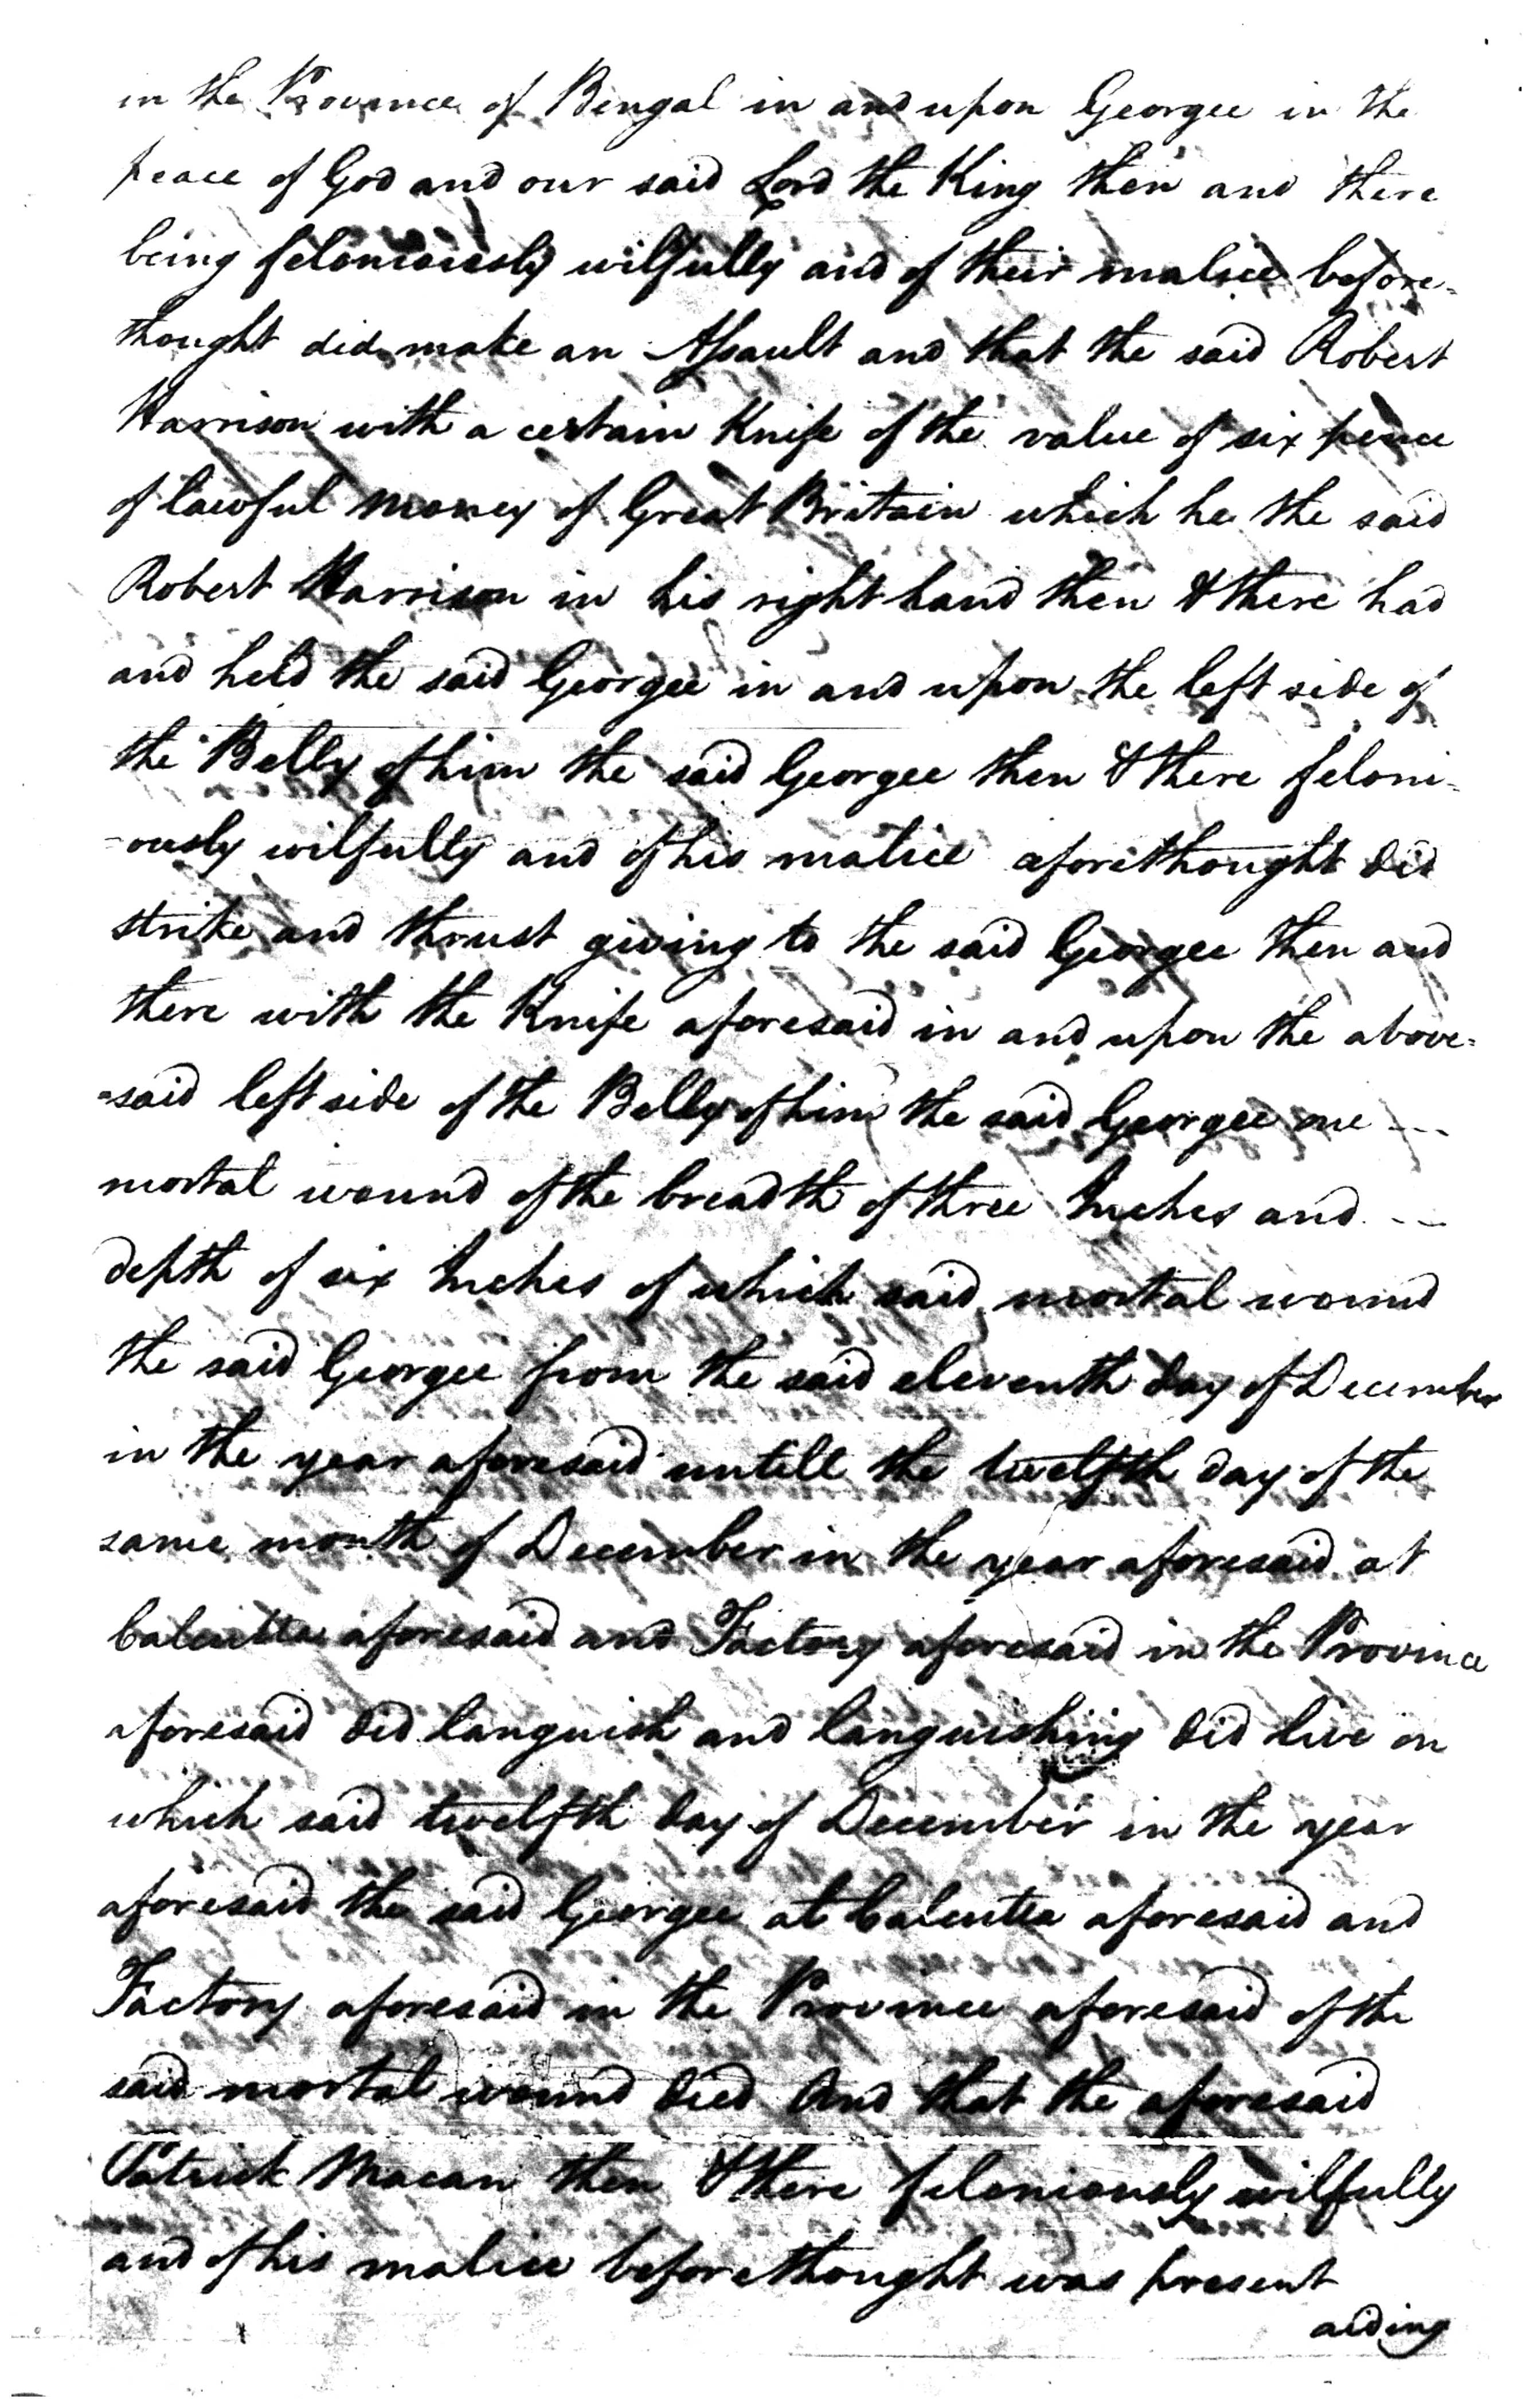 in the Province of Bengal in and upon Georgee in the
peace of God and our said Lord the King then and there
being feloniously wilfully and of their malice before-
thought did make an Assault and that the said Robert
Harrison with a certain Knife of the value of six pence
of lawful money of Great Britain which he the said
Robert Harrison in his right hand then & there had
and held the said Georgee in and upon the left side of
the Belly of him the said Georgee then & there feloni-
-ously wilfully and of his malice aforethought did
strike and thrust giving to the said Georgee then and
there with the Knife aforesaid in and upon the above-
-said left side of the Belly of him the said Georgee one ---
mortal wound of the breadth of three Inches and ---
depth of six Inches of which said mortal wound
the said Georgee from the said eleventh day of December
in the year aforesaid untill the twelfth day of the
same month of December in the year aforesaid at
Calcutta aforesaid and Factory aforesaid in the Province
aforesaid did languish and languishing did live on
which said twelfth day of December in the year
aforesaid the said Georgee at Calcutta aforesaid and
Factory aforesaid in the Province aforesaid of the
said mortal wound died And that the aforesaid
Patrick Macan then & there feloniously wilfully
and of his malice beforethought was present
aiding